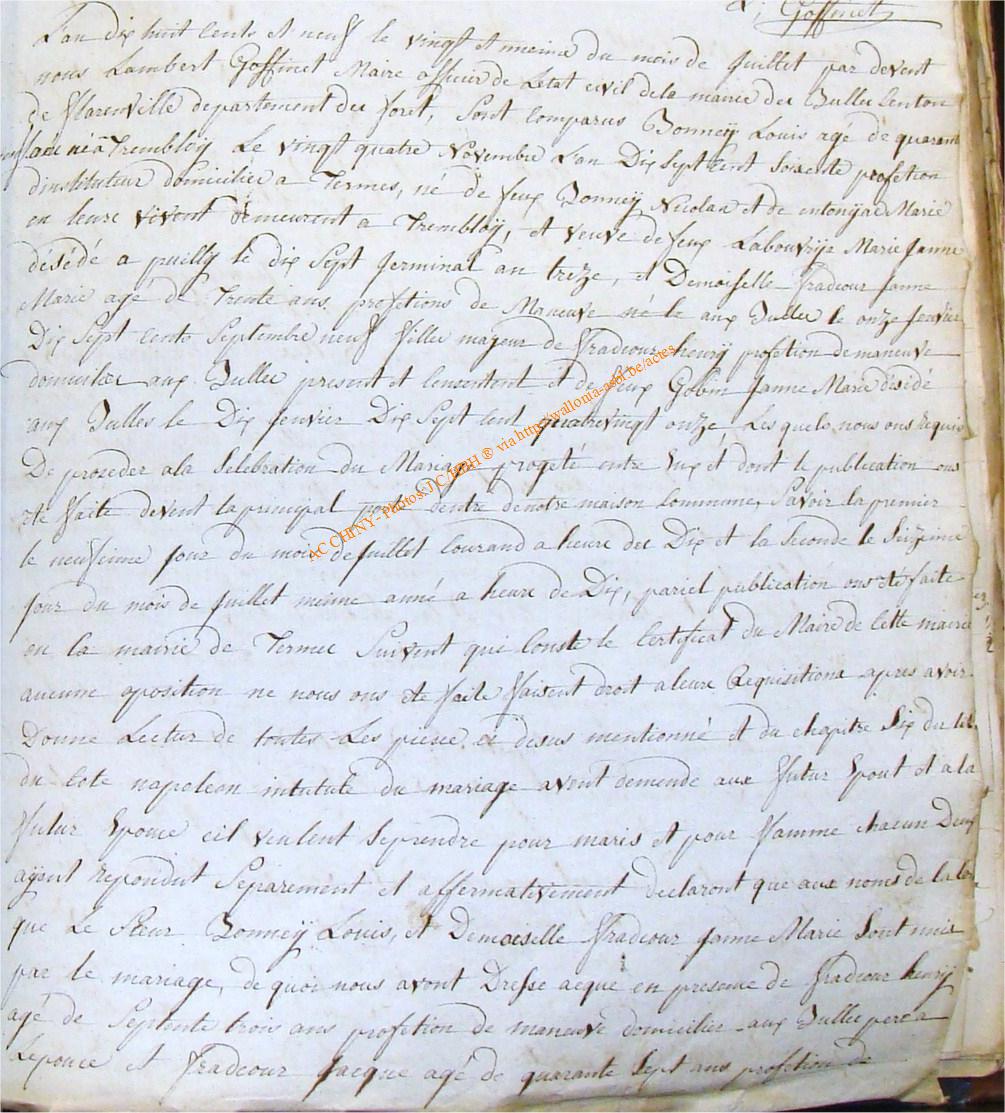 L; Goffinet
L'an dix huit cents et neuf le vingt et uneime du mois de Juillet par devent
nous Lambert Goffinet Maire officier de Letat civil dela mairie des Bulles Canton
de Florenville departement des foret, sont comparus Bonneÿ Louis agé de quarant
né à Trembloÿ Le vingt quatre Novembre L'an Dix Sept Cent Soixente profetion
dinstituteur domicilier a Termes, né de feux Bonneÿ Nicolas et de Marie
en leure vivent demeurent a Trembloÿ, et veuve de feux Labouvrÿe Marie Janne
désédé a puillÿ le dix Sept germinal an treze, et Demoiselle Fradcour Janne
Marie agé de Trente ans profetions de Maneuve né le aux Bulles le onze fenvier
Dix Sept Cents Septembre neuf filler majeur de Fradcour henrÿ profetion de maneuve
domicilier aux Bulles present et Consentent et de feux Gobin Janne Marie désédé
aux Bulles le Dix fenvier Dix Sept Cent quatrevingt onze Les quels nous ons Requis
De proseder ala Selebration du Mariage progeté entre Eux et dont le publication ons
été faite devent la principal dentre denotre maison Commune, Savoir la premier
le neufieme jour du mois de Juillet Courand a heure des Dix et la Seconde le Seizieme
jour du mois de Juillet même anné a heure de Dix, pariel publication ons été faite
en la mairie de Termes Suivent que Conste le Certificat du Maire de Cette mairie
aucune oposition ne nous ons été faite faisent droit aleure Requisitions apres avoir
Donne Lectur de toutes Les piece ci desus mentionné et du chapitre Six du tit.
du Cote napoleon intututé du mariage avont demende aux futur Epout et a la
futur Epouce cil veulent Seprendre pour maris et pour famme chacun Deux
aÿent repondut Separement et affermativement declaront que aux noms de la loi
que Le Sieur Bonneÿ Louis, et Demoiselle Fradcour Janne Marie Sont unis
par le mariage, de quoi nous avont Dresse acque en presense de Fradcour henrÿ
agé de Septente trois ans profetion de maneuve domicilier aux Bulles pere a
Lepouce et Fradcour Jacque agé de quarante Sept ans profetion de
AC CHINY - Photos: J.C. HBH ® via http://wallonia-asbl.be/actes